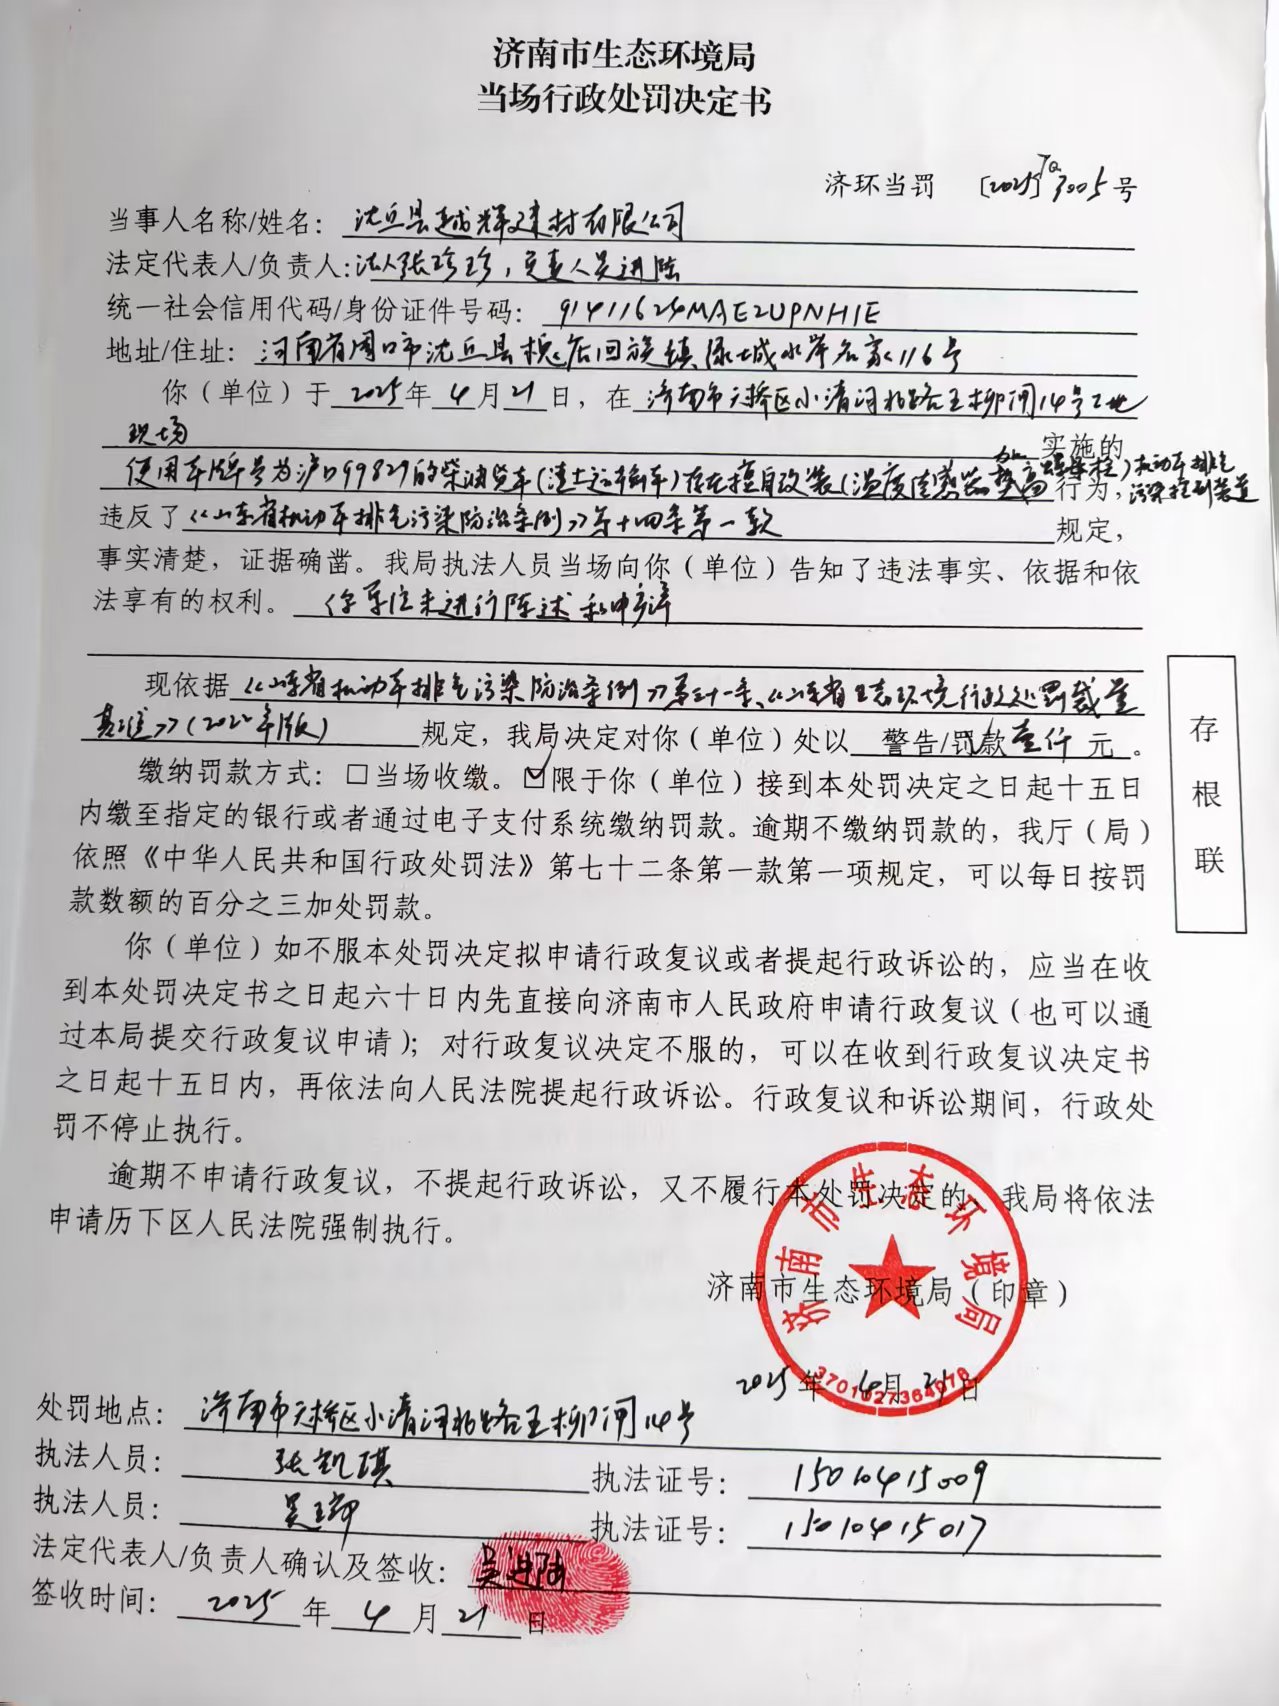 济南市生态环境局
当场行政处罚决定书
济环当罚 〔2025〕TQ3005号
当事人名称/姓名：沈丘县越辉建材有限公司
法定代表人/负责人：法人张珍珍，负责人吴进陆
统一社会信用代码/身份证件号码：91411624MAE2UPNH1E
地址/住址：河南省周口市沈丘县槐店回族镇绿城水岸名家116号
你（单位）于2025年4月21日，在济南市天桥区小清河北路王柳闸14号工地
现场 实施的
使用车牌号为沪D99827的柴油货车(渣土运输车)存在擅自改装(温度传感器加高)机动车排气
污染控制装置行为，
违反了《山东省机动车排气污染防治条例》第十四条第一款 规定，
事实清楚，证据确凿。我局执法人员当场向你（单位）告知了违法事实、依据和依
法享有的权利。你单位未进行陈述和申辩
现依据《山东省机动车排气污染防治条例》第三十一条、《山东省生态环境行政处罚裁量
基准》(2022年版) 规定，我局决定对你（单位）处以 警告/罚款壹仟 元。
缴纳罚款方式：□当场收缴。☑限于你（单位）接到本处罚决定之日起十五日
内缴至指定的银行或者通过电子支付系统缴纳罚款。逾期不缴纳罚款的，我厅（局）
依照《中华人民共和国行政处罚法》第七十二条第一款第一项规定，可以每日按罚
款数额的百分之三加处罚款。
你（单位）如不服本处罚决定拟申请行政复议或者提起行政诉讼的，应当在收
到本处罚决定书之日起六十日内先直接向济南市人民政府申请行政复议（也可以通
过本局提交行政复议申请）；对行政复议决定不服的，可以在收到行政复议决定书
之日起十五日内，再依法向人民法院提起行政诉讼。行政复议和诉讼期间，行政处
罚不停止执行。
逾期不申请行政复议，不提起行政诉讼，又不履行本处罚决定的，我局将依法
申请历下区人民法院强制执行。
济南市生态环境局（印章）
济南市生态环境局
3701027364976
2025年4月21日
处罚地点：济南市天桥区小清河北路王柳闸14号
执法人员：张凯琪 执法证号：15010415009
执法人员：吴 执法证号：15010415017
法定代表人/负责人确认及签收：吴进陆
签收时间：2025年4月21日
存根联